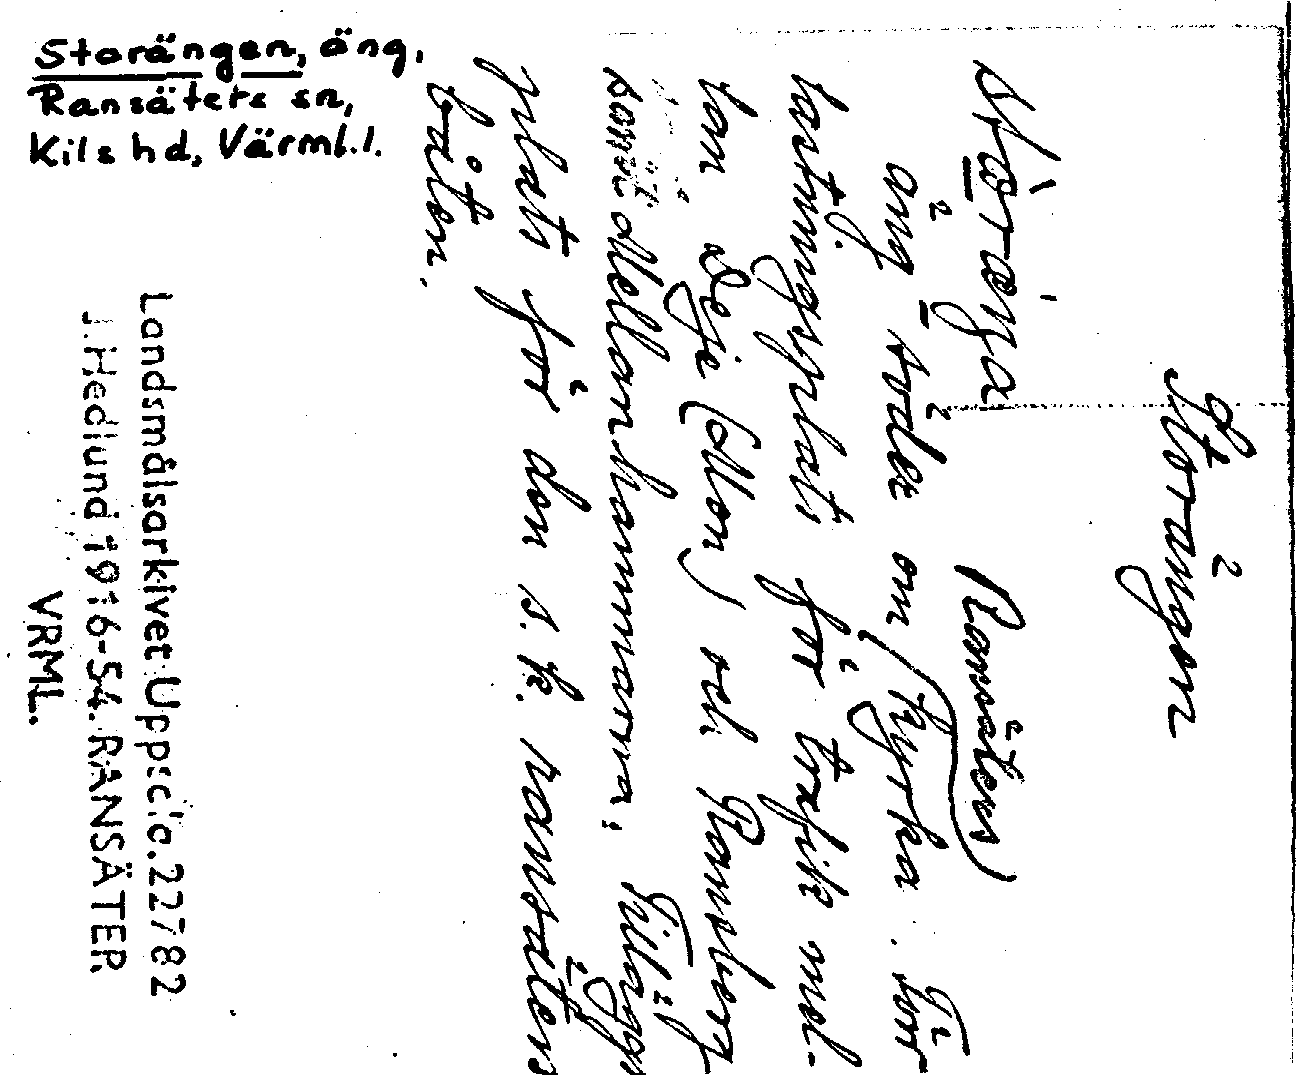 Storängen, äng,
Ransäters sn,
Kils hd, Värml. l.
Storängen
äng söder om Ransäters kyrka. Förr
lastningsplats för trafik mel-
lan Deje (Mon) och Ransberg
samt Mellanhammarna,
plats för den s.k. ransäters
båten.
Landsmålsarkivet Uppsala. 22782
J. Hedlund 1916-54. RANSÄTER.
VRML.